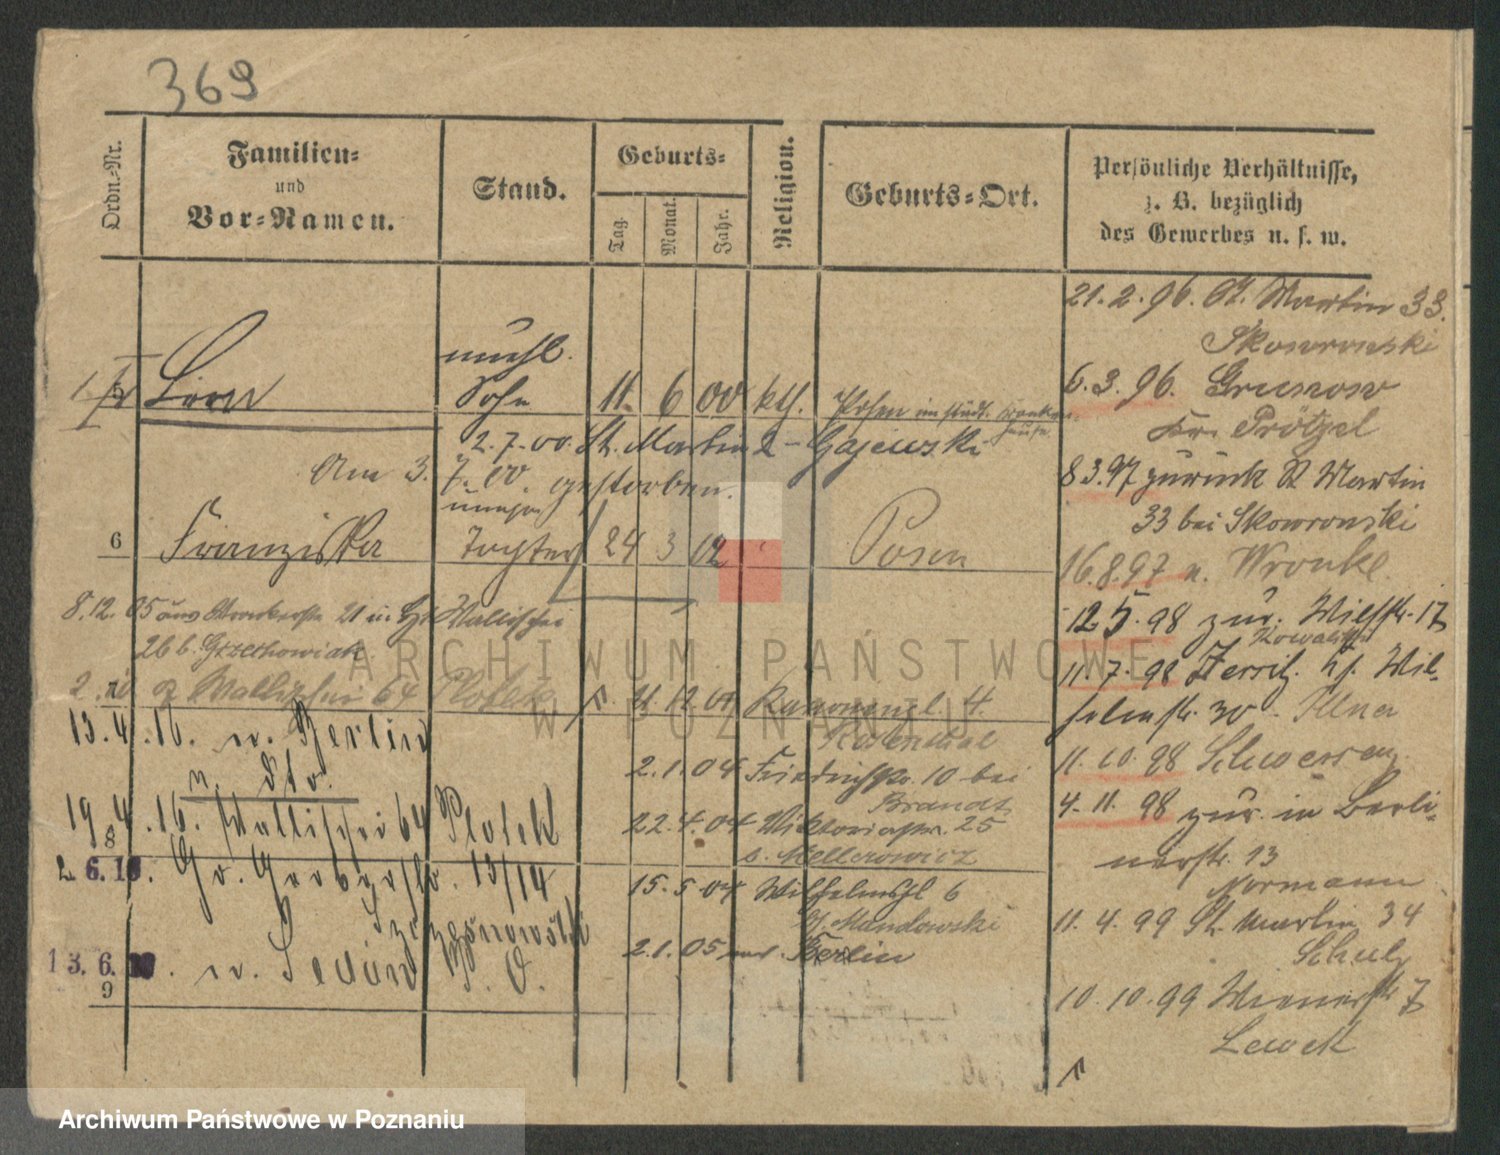 369
Ordn.-Nr.
Familien-
und
Vor-Namen.
Stand.
Geburts-
Tag.
Monat.
Jahr.
Religion.
Geburts-Ort.
Persönliche Verhältnisse,
z. B. bezüglich
des Gewerbes u. s. w.
unehl.
5 Leon Sohn 11. 6 00 kth. Posen im städt. Kranken-
hause
2.7.00. St. Martin 2 - Gajewski
Am 3. 7. 00. gestorben.
6 Franziska Tochter 24 3 02 Posen
8.12. 05 21 Wallischei
26 b. Grzechowiak
Wallischei 64 Plotek
13.4.16. n. Berlin
n. dto.
19.4.16. Wallischei 64 Plotek
8
2. 6. 16. Gr. Gerberstr. 13/14
13. 6. 16. n.
9
11. 11. 01 Kanonenpl. 4.
Rosenthal
2.1.04 Friedrichstr. 10 bei
Brandt
22.4.04 Viktoriastr. 25
b. Mellerowicz
15.5.04 Wilhelmspl 6
b/ Mandowski
2.1.05 nach Berlin
21.2.96. St. Martin 33.
Skowronski
6.3.96. Grunow
Kr. Prötzel
8.3.97 zurück St Martin
33 bei Skowronski
16.8.97 n. Wronke.
12 5. 98 zur. Wilhstr. 17
Kowalski
11.7.98 Jersitz. Wil-
helmstr. 30
11.10.98 Schwersenz
4.11.98 zur. in Berli-
nerstr. 13
Normann
11.4.99 St. Martin 34
Schulz
10.10.99 Wienerstr 7
Lewek
ARCHIWUM PAŃSTWOWE
W POZNANIU
Archiwum Państwowe w Poznaniu